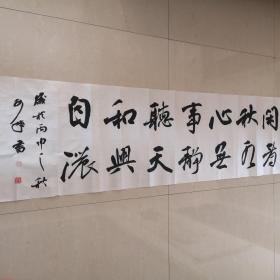 闲看
秋水
心無
事静
聽天
和興
自濃
歲於丙申之秋